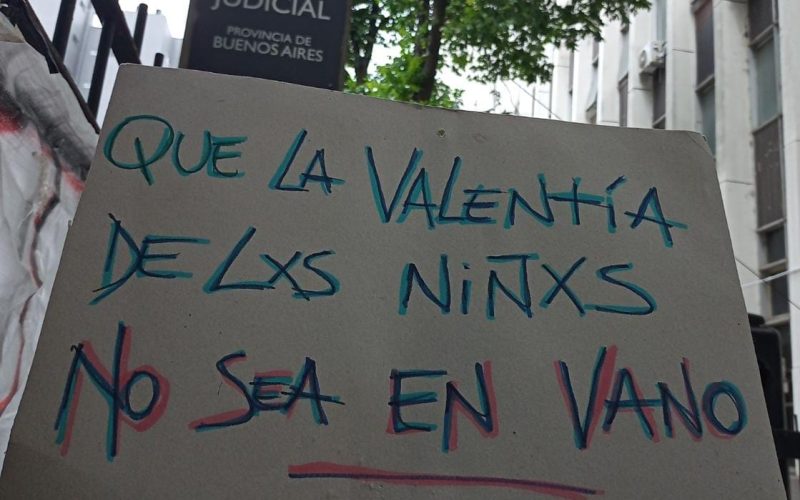 JUDICIAL
PROVINCIA DE
BUENOS AIRES
QUE LA VALENTÍA
DE LXS NIÑXS
NO SEA EN VANO